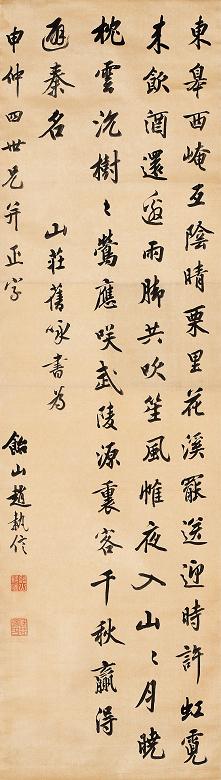 東皋西崦互陰晴栗里花溪罷送迎時許虹霓
来飲酒還邀雨脚共吹笙風帷夜入山〻月曉
枕雲沉樹〻鶯應咲武陵源裏客千秋贏得
避秦名　山莊舊咏書為
申仲四世兄并正字
飴山趙執信